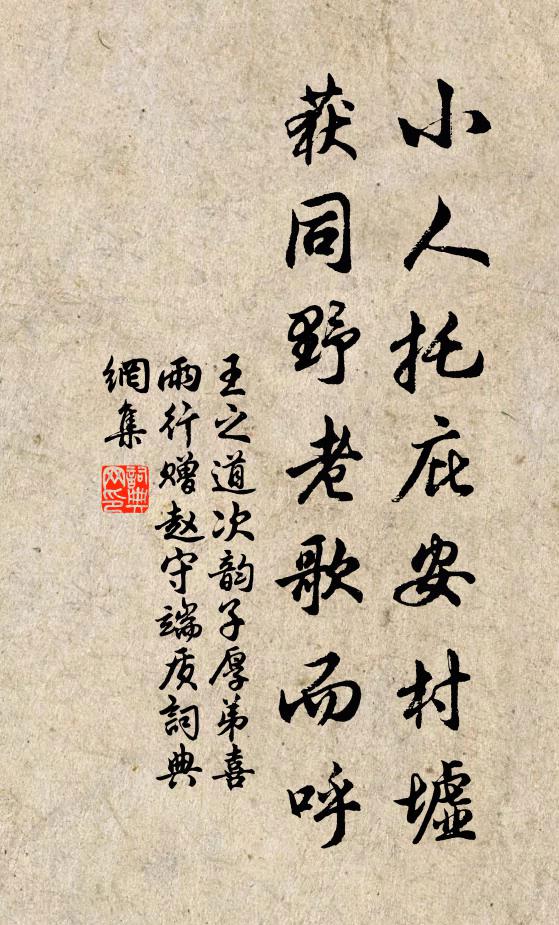 小人托庇安村墟
获同野老歌而呼
王之道次韵子厚弟喜
雨行赠赵守端质詞典
網集
詞典
网印